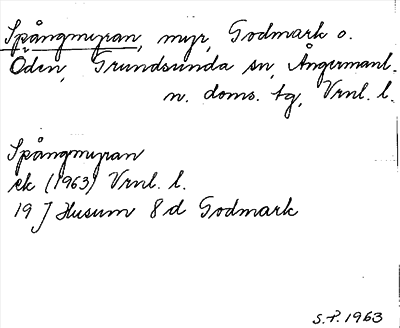 Spångmyran, myr, Godmark o.
Öden, Grundsunda sn, Ångermanl.
n. doms. tg, Vrnl. l.
Spångmyran
ek (1963) Vrnl. l.
19 J Husum 8 d Godmark
S.P. 1963